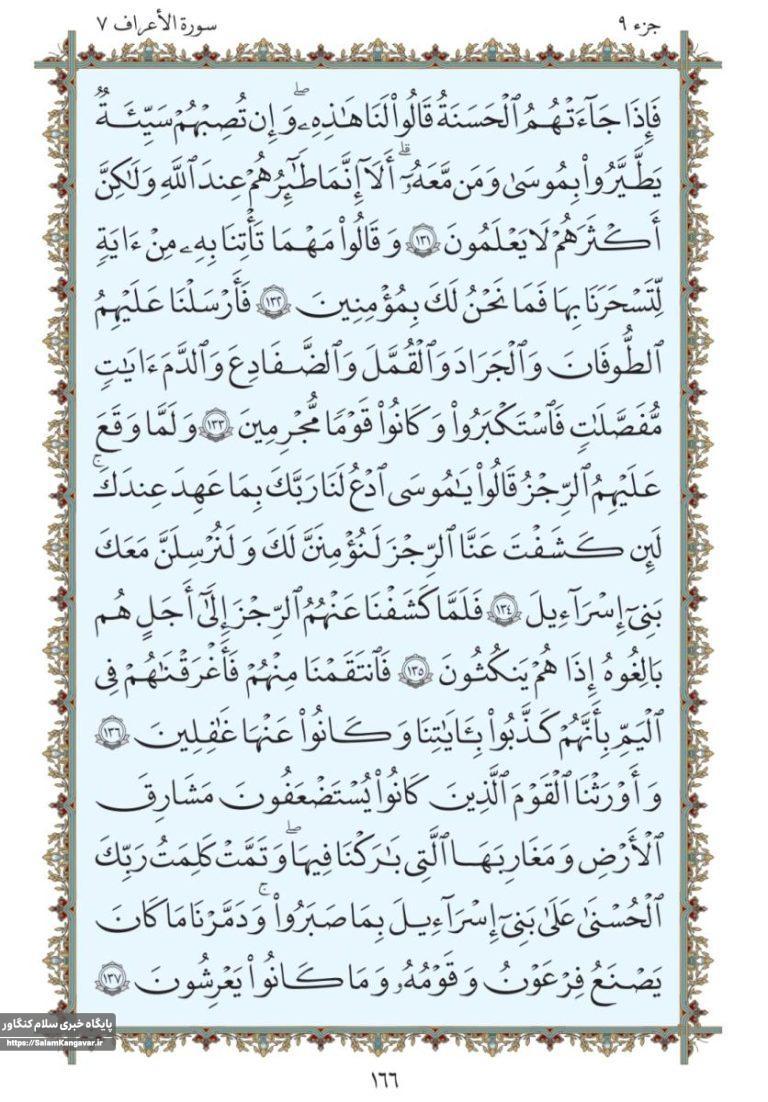 جزء ٩
سورة الأعراف ٧
فَإِذَا جَآءَتْهُمُ ٱلْحَسَنَةُ قَالُوا۟ لَنَا هَٰذِهِۦ ۖ وَإِن تُصِبْهُمْ سَيِّئَةٌ
يَطَّيَّرُوا۟ بِمُوسَىٰ وَمَن مَّعَهُۥٓ ۗ أَلَآ إِنَّمَا طَٰٓئِرُهُمْ عِندَ ٱللَّهِ وَلَٰكِنَّ
أَكْثَرَهُمْ لَا يَعْلَمُونَ ١٣١ وَقَالُوا۟ مَهْمَا تَأْتِنَا بِهِۦ مِنْ ءَايَةٍ
لِّتَسْحَرَنَا بِهَا فَمَا نَحْنُ لَكَ بِمُؤْمِنِينَ ١٣٢ فَأَرْسَلْنَا عَلَيْهِمُ
ٱلطُّوفَانَ وَٱلْجَرَادَ وَٱلْقُمَّلَ وَٱلضَّفَادِعَ وَٱلدَّمَ ءَايَٰتٍ
مُّفَصَّلَٰتٍ فَٱسْتَكْبَرُوا۟ وَكَانُوا۟ قَوْمًا مُّجْرِمِينَ ١٣٣ وَلَمَّا وَقَعَ
عَلَيْهِمُ ٱلرِّجْزُ قَالُوا۟ يَٰمُوسَى ٱدْعُ لَنَا رَبَّكَ بِمَا عَهِدَ عِندَكَ ۖ
لَئِن كَشَفْتَ عَنَّا ٱلرِّجْزَ لَنُؤْمِنَنَّ لَكَ وَلَنُرْسِلَنَّ مَعَكَ
بَنِىٓ إِسْرَٰٓءِيلَ ١٣٤ فَلَمَّا كَشَفْنَا عَنْهُمُ ٱلرِّجْزَ إِلَىٰٓ أَجَلٍ هُم
بَٰلِغُوهُ إِذَا هُمْ يَنكُثُونَ ١٣٥ فَٱنتَقَمْنَا مِنْهُمْ فَأَغْرَقْنَٰهُمْ فِى
ٱلْيَمِّ بِأَنَّهُمْ كَذَّبُوا۟ بِـَٔايَٰتِنَا وَكَانُوا۟ عَنْهَا غَٰفِلِينَ ١٣٦
وَأَوْرَثْنَا ٱلْقَوْمَ ٱلَّذِينَ كَانُوا۟ يُسْتَضْعَفُونَ مَشَٰرِقَ
ٱلْأَرْضِ وَمَغَٰرِبَهَا ٱلَّتِى بَٰرَكْنَا فِيهَا ۖ وَتَمَّتْ كَلِمَتُ رَبِّكَ
ٱلْحُسْنَىٰ عَلَىٰ بَنِىٓ إِسْرَٰٓءِيلَ بِمَا صَبَرُوا۟ ۖ وَدَمَّرْنَا مَا كَانَ
يَصْنَعُ فِرْعَوْنُ وَقَوْمُهُۥ وَمَا كَانُوا۟ يَعْرِشُونَ ١٣٧
پایگاه خبری سلام کنگاور
https://SalamKangavar.ir
١٦٦